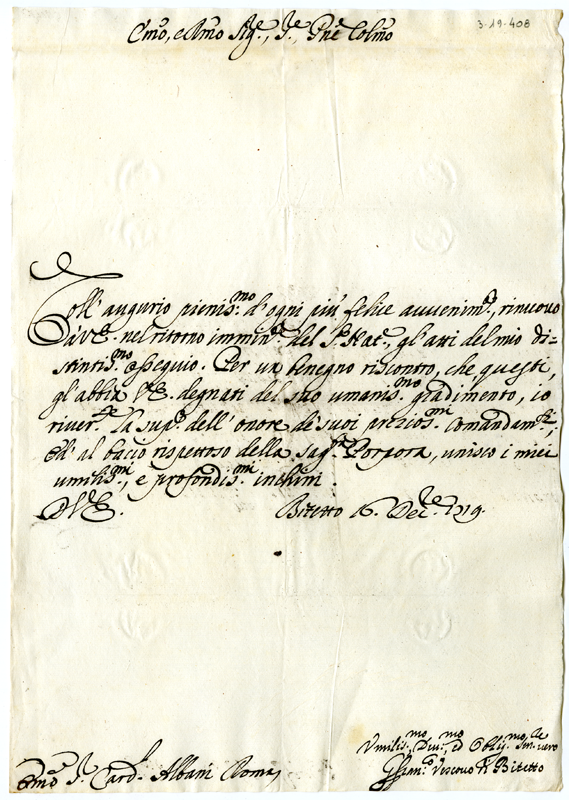 3-19-408
Em̃o, e Rm̃o Sig.re, Sig.re Pñe Colm̃o
Coll' augurio pienis.mo d'ogni più felice avvenim.to, rinuovo
à V.E. nel ritorno immin.te del S. Nat.e, gl'atti del mio di=
stintis.mo ossequio. Per un benegno riscontro, che questi,
gl'abbia V.E. degnati del suo umanis.mo gradimento, io
river.te la sup.co dell'onore di suoi prezios.mi Comandam.ti,
Ed' al bacio rispettoso della sag.ra Porpora, unisco i miei
umilis.mi, e profondis.mi inchini.
D.V.E. Bitetto 16. Dec.re 1719.
Vmilis.mo Div.mo, ed Oblig.mo Ser.re vero
Em̃o S.r Card.l Albani Roma
Vescovo di Bitetto